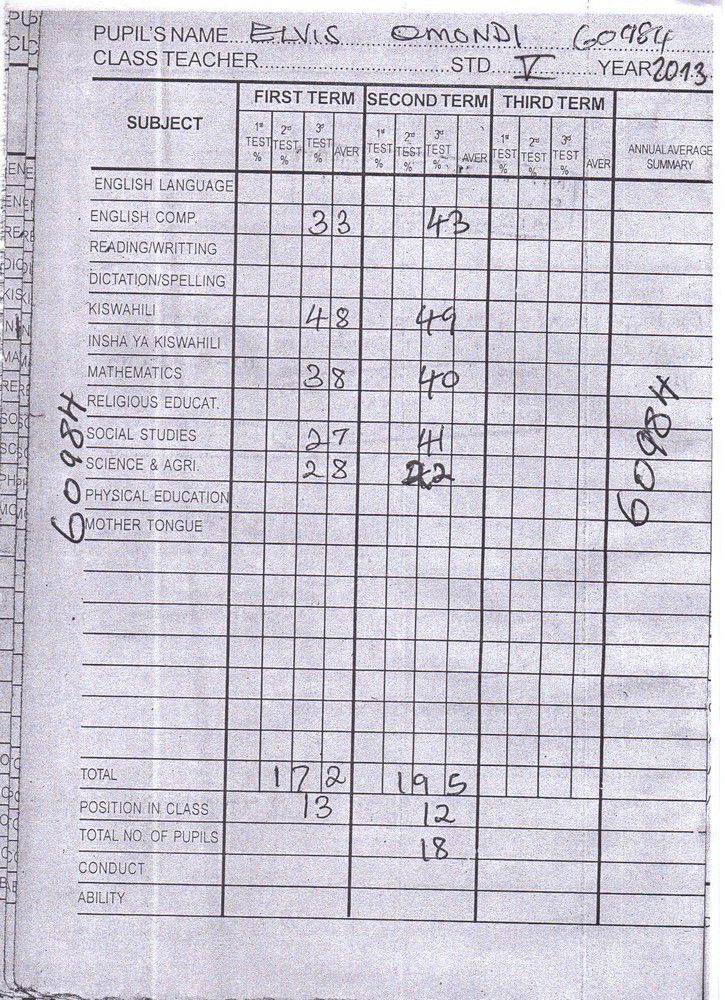 PUPIL'S NAME ELVIS OMONDI 60984
CLASS TEACHER STD V YEAR 2013
SUBJECT FIRST TERM SECOND TERM THIRD TERM ANNUAL AVERAGE SUMMARY
1st TEST % 2nd TEST % 3rd TEST % AVER 1st TEST % 2nd TEST % 3rd TEST % AVER 1st TEST % 2nd TEST % 3rd TEST % AVER
ENGLISH LANGUAGE
ENGLISH COMP. 33 43
READING/WRITTING
DICTATION/SPELLING
KISWAHILI 48 49
INSHA YA KISWAHILI
MATHEMATICS 38 40
RELIGIOUS EDUCAT.
SOCIAL STUDIES 27 41
SCIENCE & AGRI. 28 22
PHYSICAL EDUCATION
MOTHER TONGUE
60984
60984
TOTAL 172 195
POSITION IN CLASS 13 12
TOTAL NO. OF PUPILS 18
CONDUCT
ABILITY